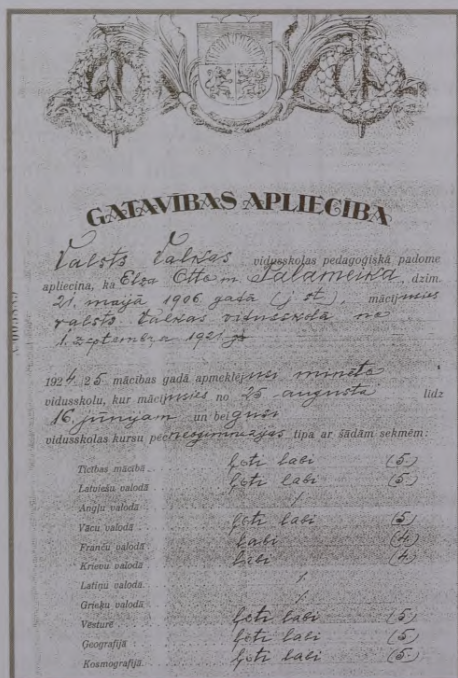 GATAVĪBAS APLIECĪBA
Valsts Valkas vidusskolas pedagoģiskā padome
apliecina, ka Elza Otto m. Palameika, dzim.
21. maijā 1906 gadā (j. st.), mācījusies
valsts Valkas vidusskolā no
1. septembra 1921
1924/25 mācības gadā apmeklējusi minēto
vidusskolu, kur mācījusies no 25 augusta līdz
16. jūnijam un beigusi
vidusskolas kursu pēc neoģimnāzijas tipa ar šādām sekmēm:
Ticības mācībā ļoti labi (5.)
Latviešu valodā ļoti labi (5.)
Angļu valodā
Vācu valodā ļoti labi (5)
Franču valodā labi (4)
Krievu valodā labi (4)
Latiņu valodā
Grieķu valodā
Vēsturē ļoti labi (5)
Ģeografijā ļoti labi (5)
Kosmografijā ļoti labi (5)